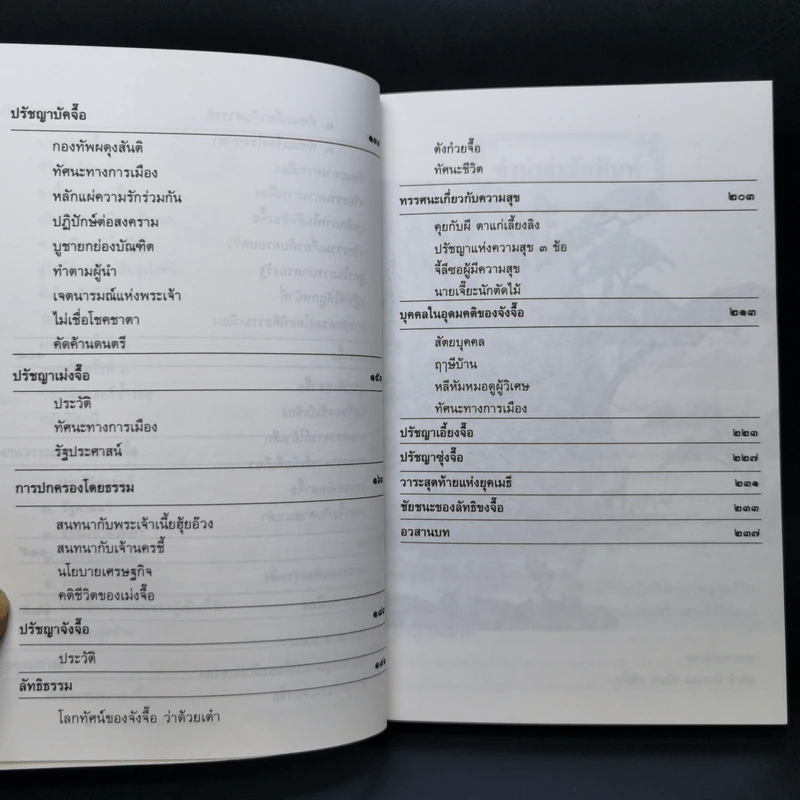 ปรัชญาบัคจื๊อ
กองทัพผดุงสันติ
ทัศนะทางการเมือง
หลักแผ่ความรักร่วมกัน
ปฏิปักษ์ต่อสงคราม
บูชายกย่องบัณฑิต
ทำตามผู้นำ
เจตนารมณ์แห่งพระเจ้า
ไม่เชื่อโชคชาตา
คัดค้านดนตรี
ปรัชญาเม่งจื๊อ
ประวัติ
ทัศนะทางการเมือง
รัฐประศาสน์
การปกครองโดยธรรม
สนทนากับพระเจ้าเนี้ยฮุ้ยอ๊วง
สนทนากับเจ้านครชี้
นโยบายเศรษฐกิจ
คติชีวิตของเม่งจื๊อ
ปรัชญาจังจื๊อ
ประวัติ
ลัทธิธรรม
โลกทัศน์ของจังจื๊อ ว่าด้วยเต๋า
ตังก๋วยจื๊อ
ทัศนะชีวิต
ทรรศนะเกี่ยวกับความสุข ๒๐๓
คุยกับผี ตาแก่เลี้ยงลิง
ปรัชญาแห่งความสุข ๓ ข้อ
จี้ลีซอผู้มีความสุข
นายเจี๊ยะนักตัดไม้
บุคคลในอุดมคติของจังจื๊อ ๒๑๓
สัตยบุคคล
ฤๅษีบ้าน
หลีหัมหมอดูผู้วิเศษ
ทัศนะทางการเมือง
ปรัชญาเอี้ยงจื๊อ ๒๒๓
ปรัชญาซุ่งจื๊อ ๒๒๗
วาระสุดท้ายแห่งยุคเมธี ๒๓๑
ชัยชนะของลัทธิขงจื๊อ ๒๓๓
อวสานบท ๒๓๗